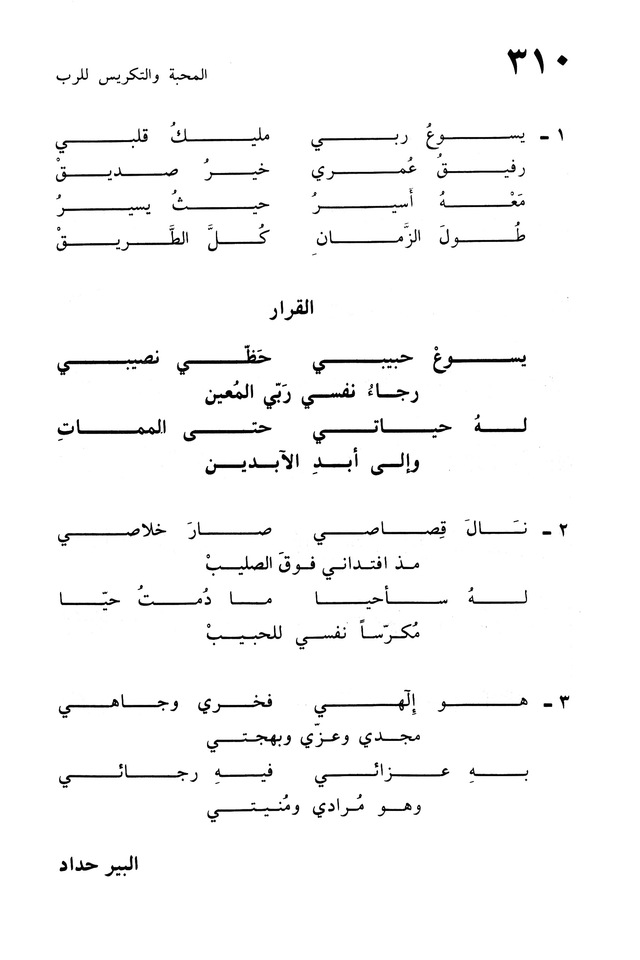 ٣١٠
المحبة والتكريس للرب
١ - يسوعُ ربي مليكُ قلبي
رفيقُ عُمري خيرُ صديقْ
مَعْهُ أَسيرُ حيثُ يسيرُ
طُولَ الزَّمانِ كُلَّ الطَّريقْ
القرار
يسوعْ حبيبي حَظّي نصيبي
رجاءُ نفسي رَبّي المُعين
لهُ حياتي حتى المماتِ
وإلى أبدِ الآبدين
٢ - نَالَ قِصاصي صارَ خلاصي
مذ افتداني فوقَ الصليبْ
لهُ سأحيا ما دُمتُ حيّا
مُكرّساً نفسي للحبيبْ
٣ - هو إِلٰهي فخري وجاهي
مجدي وعزّي وبهجتي
بهِ عزائي فيهِ رجائي
وهو مُرادي ومُنيتي
البير حداد